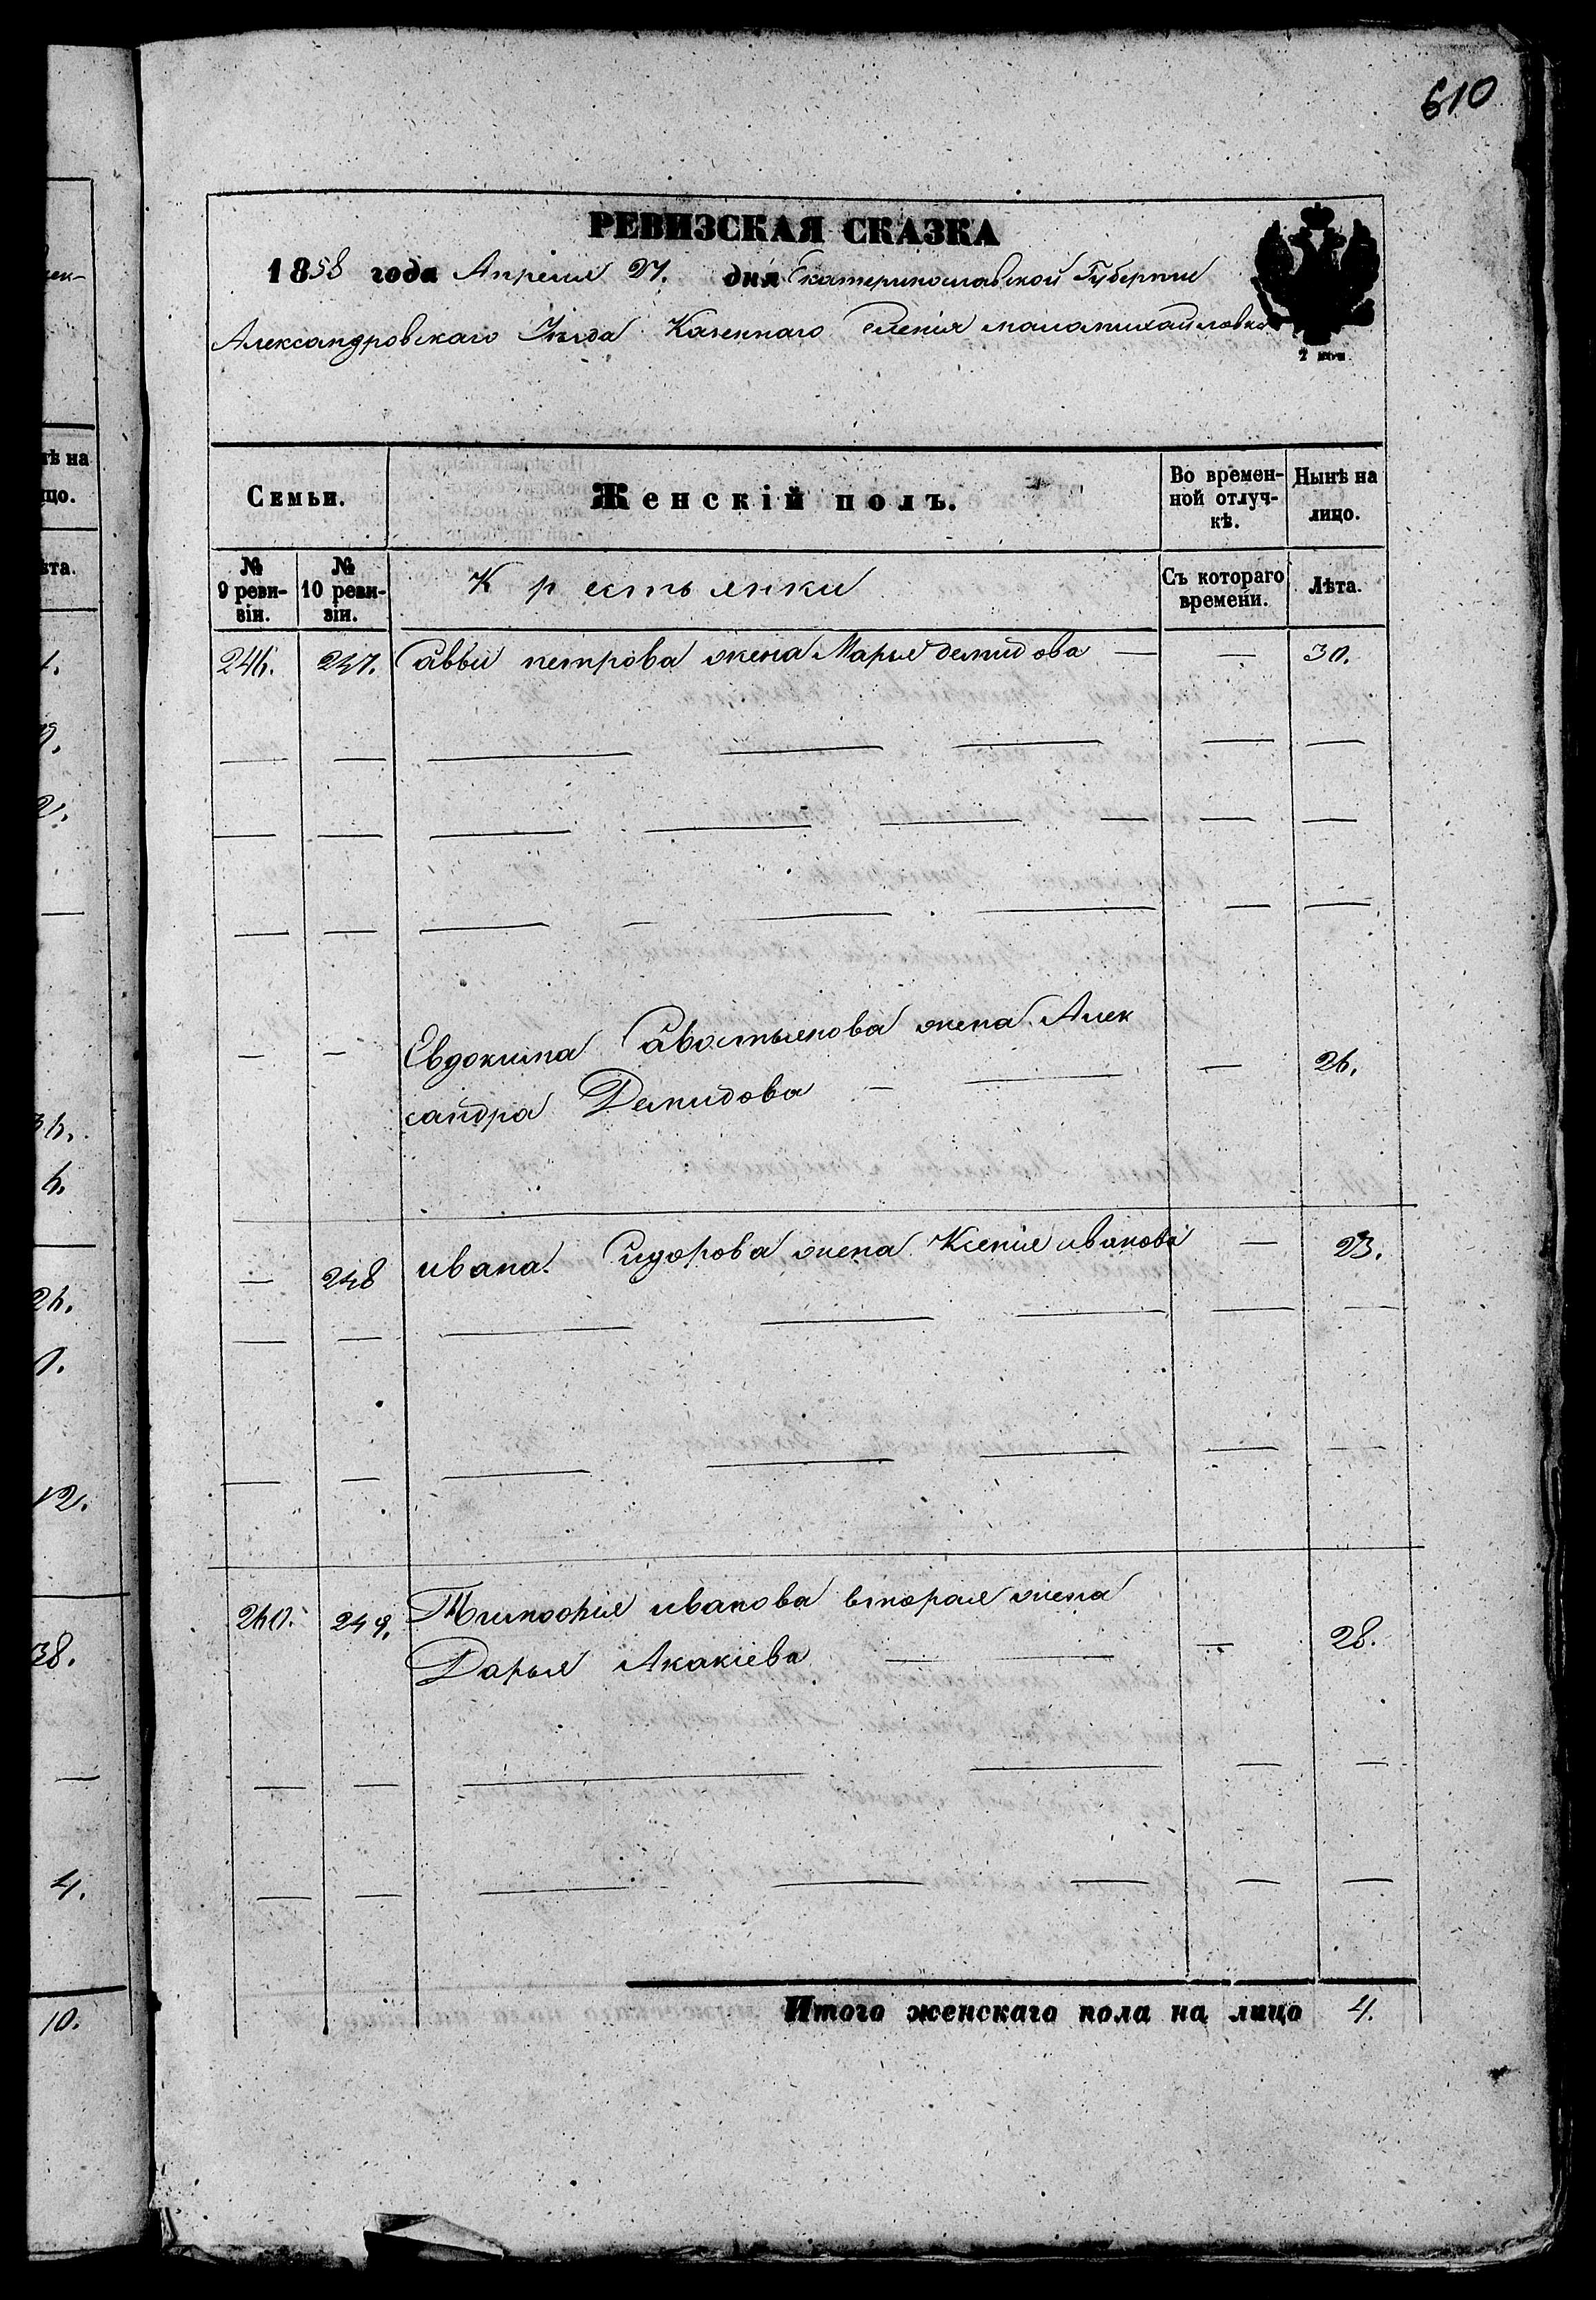 610
РЕВИЗСКАЯ СКАЗКА
1858 года Апреля 27. дня Екатеринославской Губернии
Александровскаго Уезда Казеннаго Селенія маломихайловки
2 коп.
Семьи. Женскій полъ. Во временной отлучкѣ. Нынѣ на лицо.
№ 9 ревизіи. № 10 ревизіи. Крестьянки Съ котораго времени. Лѣта.
246. 247. Саввы петрова жена Марья демидова — — 30.
— — Евдокима Савостьянова жена Алек
сандра Демидова — — — 26.
— 248 ивана Сидорова жена Ксенія иванова — 23.
260. 249. Тимофея иванова вторая жена
Дарья Акакіева — — — 28.
Итого женскаго пола на лицо 4.
нѣ на
цо.
ѣта.
12.
38.
4.
10.